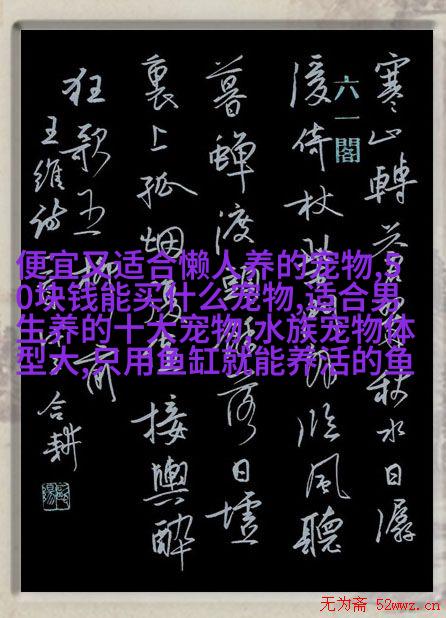 寒山轉蒼翠秋水日潺
六一閣
湲倚杖柴門外临風聽
暮蟬渡頭餘落日墟
裏上孤烟復值接輿醉
狂歌五柳前
王維詩
合耕
便宜又适合懒人养的宠物,5
0块钱能买什么宠物,适合男
生养的十大宠物,水族宠物体
型大,只用鱼缸就能养活的鱼
无为斋 52wwz.cn